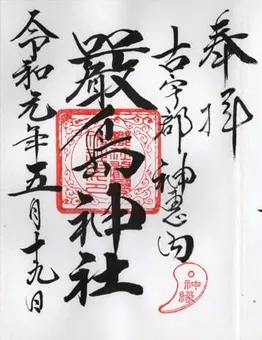 奉拝
古宇郡 神恵内
嚴島神社
令和元年五月十九日
神縁